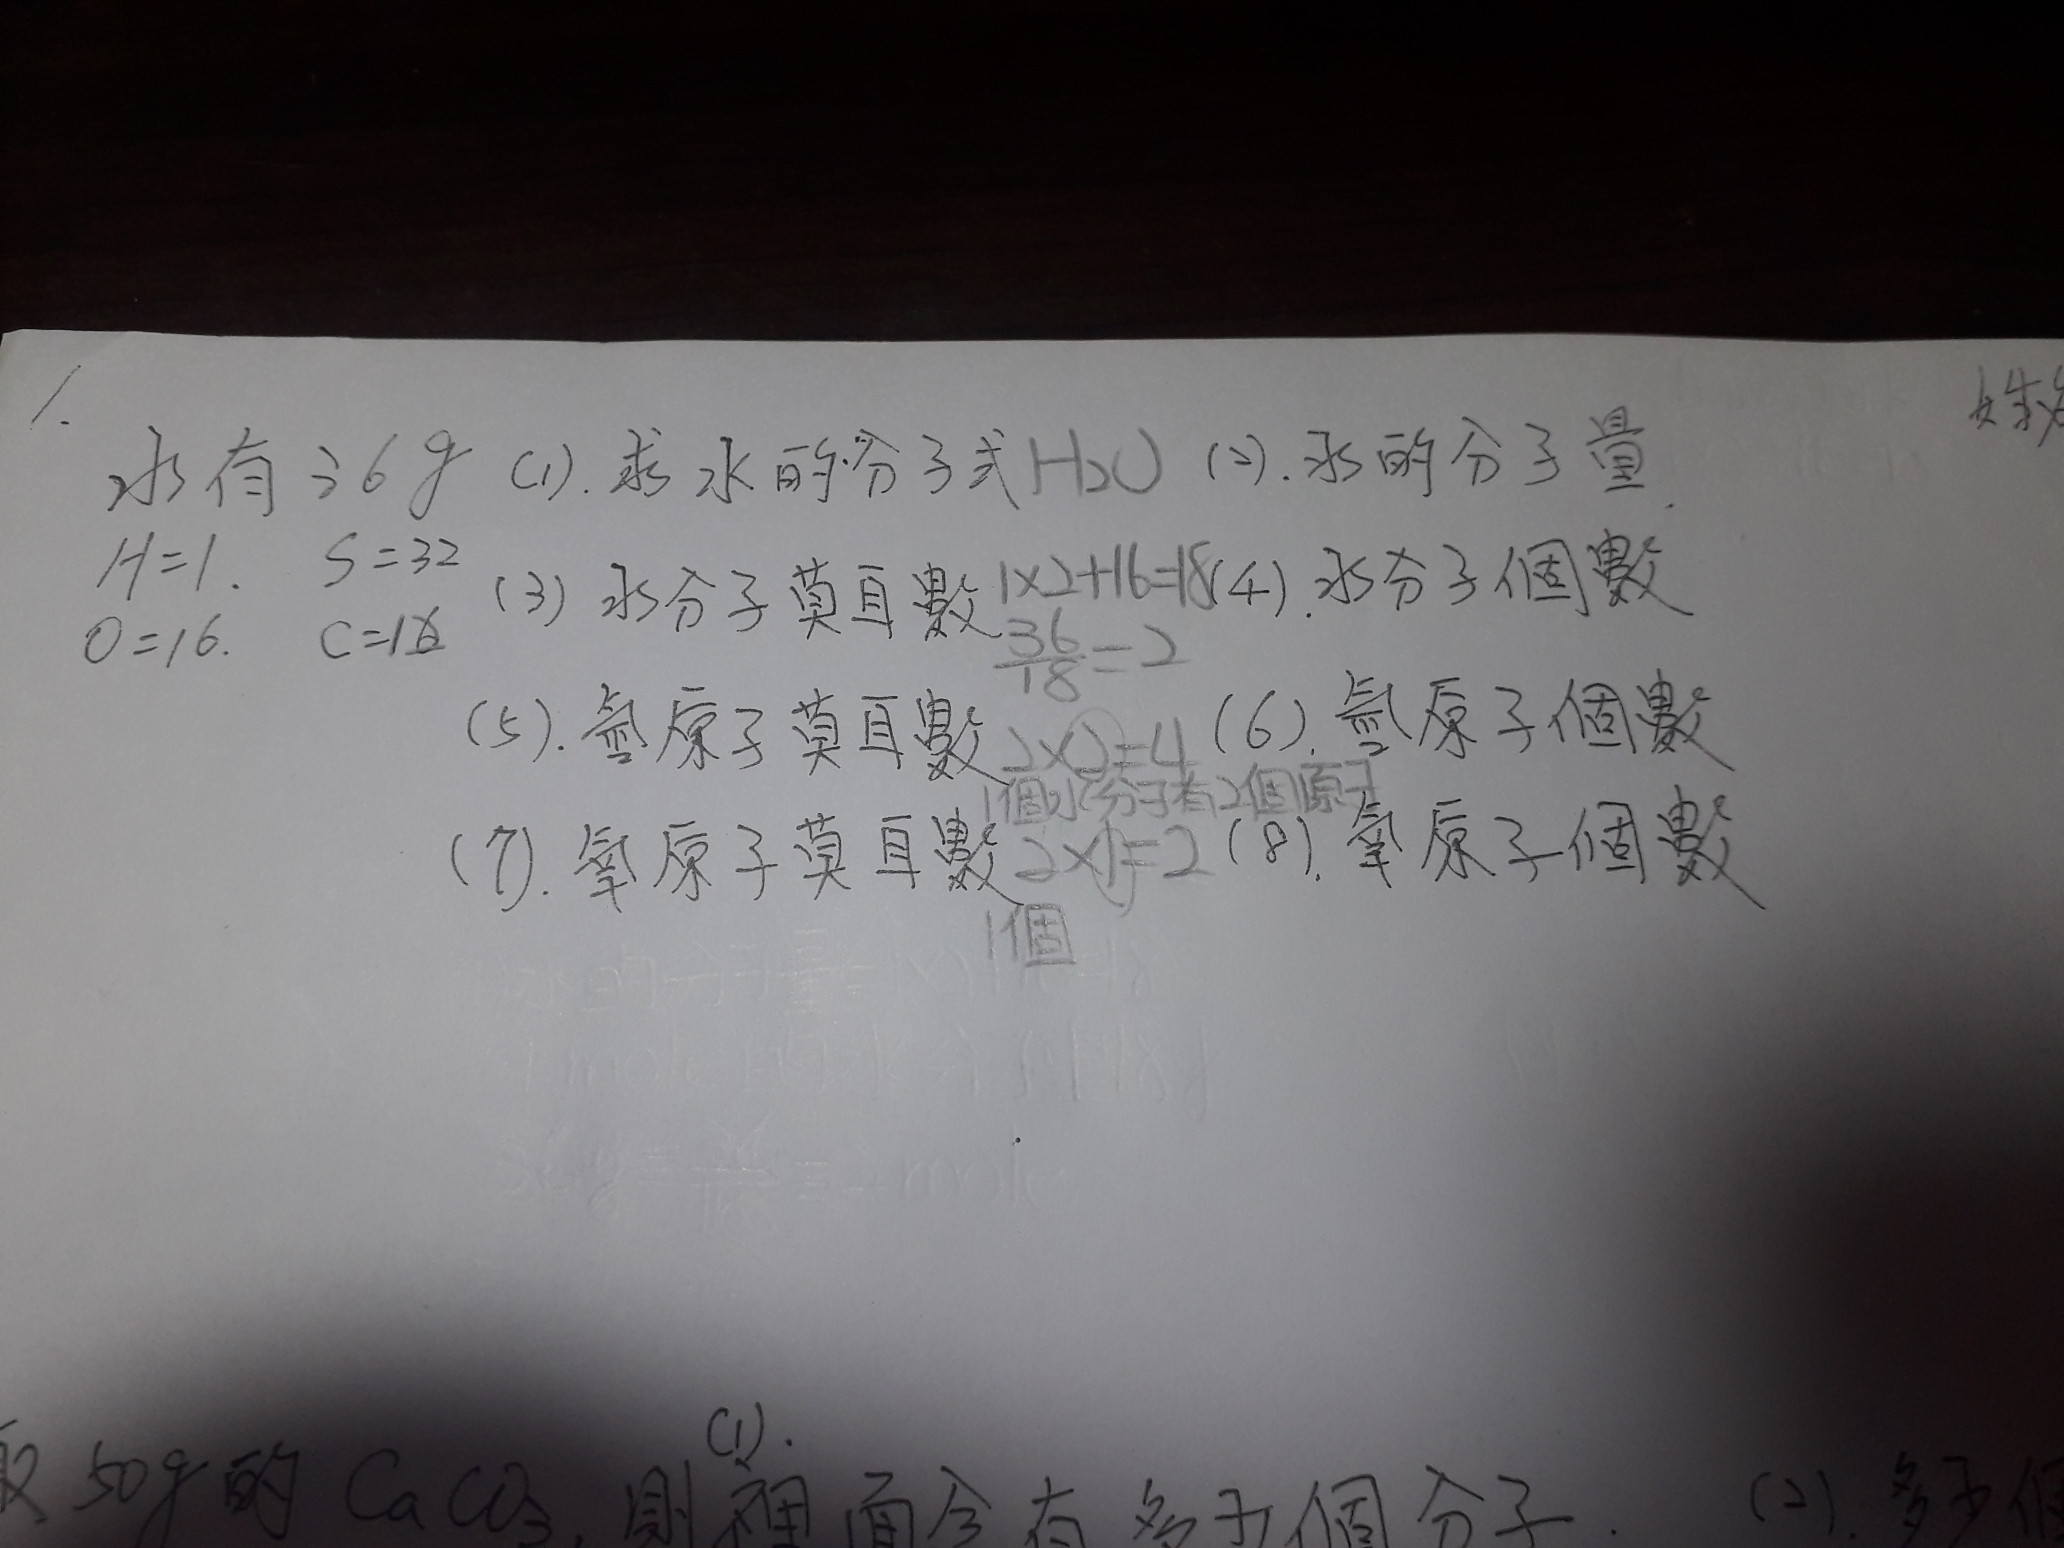 1.
水有36g (1). 求水的分子式 H2O (2). 水的分子量.
H=1. S=32
(3) 水分子莫耳數 1×2+16=18 (4). 水分子個數
O=16. C=12
36/18=2
(5). 氫原子莫耳數 2×2=4 (6). 氫原子個數
1個水分子有2個原子
(7). 氧原子莫耳數 2×1=2 (8). 氧原子個數
1個
(1).
取50g的CaCO3, 則裡面含有多少個分子. (2). 多少個